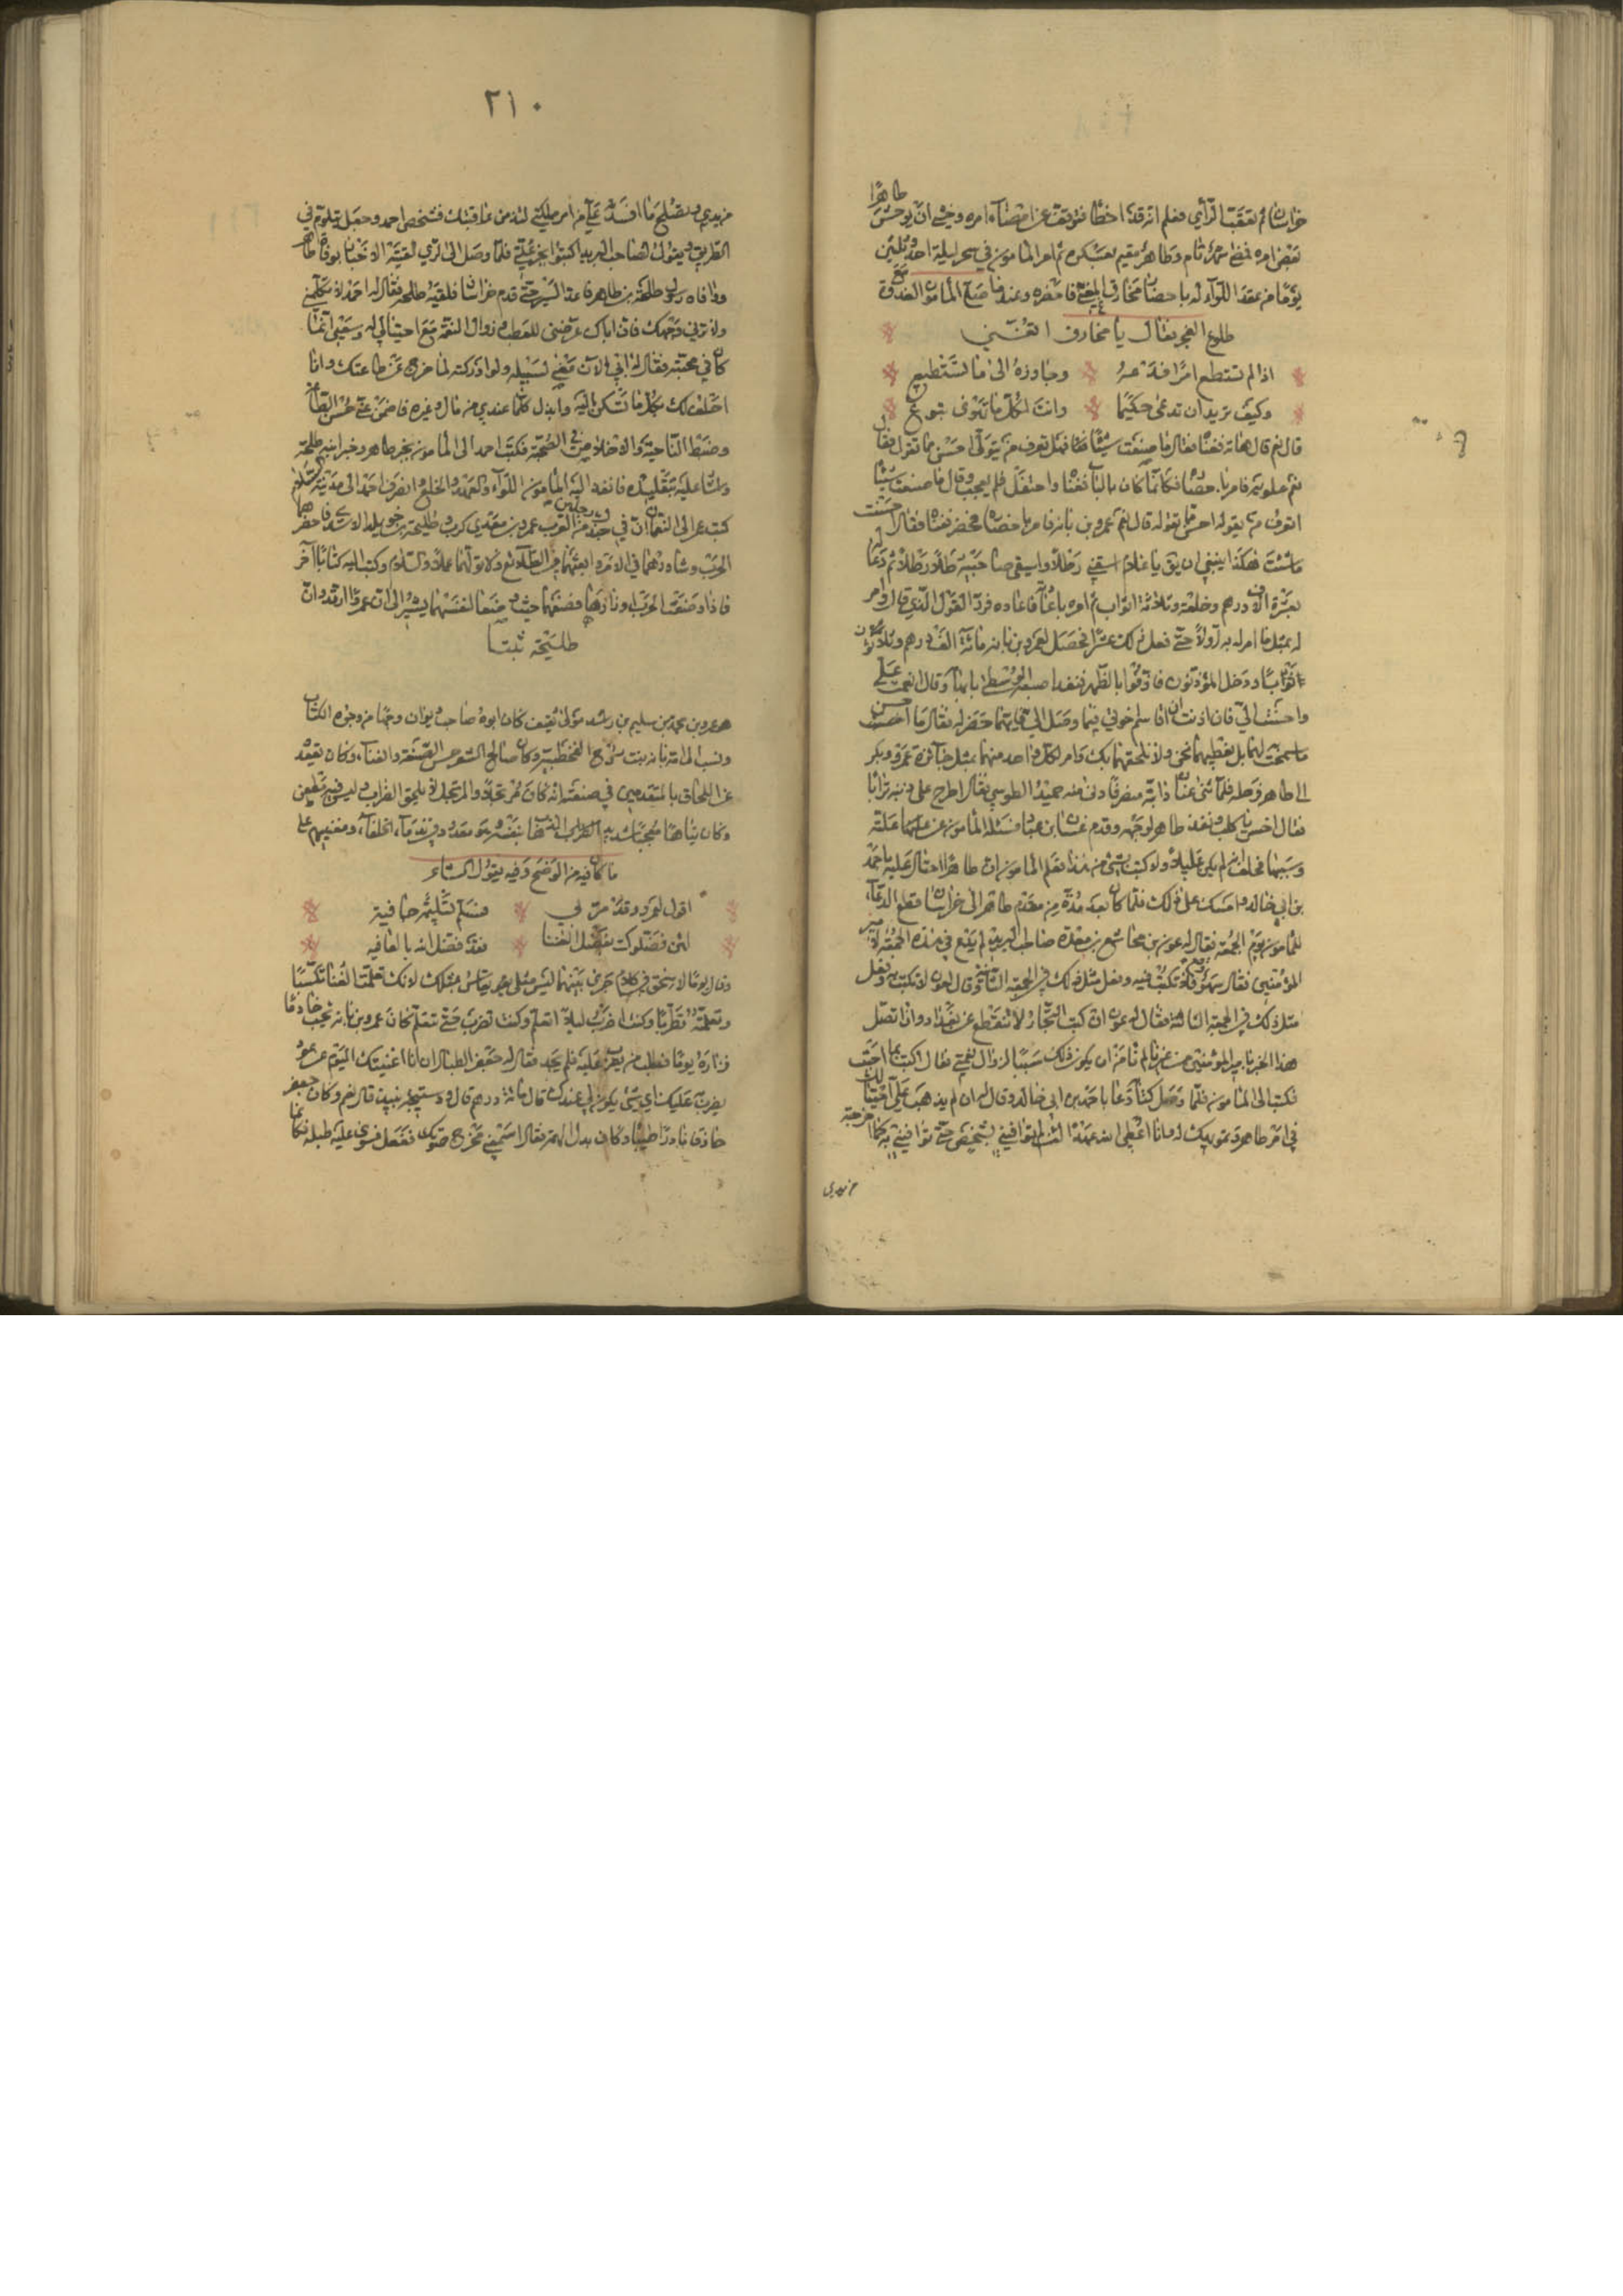 طاهرًا
خراسان ثم تعقب الرأي فعلم انه قد اخطأ فتوقف عن امضاء امره وخشي ان يوحش
بعض امره فمضى شهر تام وطاهر مقيم بعسكره ثم امر المأمون في سحر ليلة احد وثلثين
يومًا من عقد اللواء له باحضار مخارق المغني فاحضره وقد صلى المأمون الغدوة مع
طلوع الفجر فقال يا مخارق اتغني
اذا لم تستطع امرًا فدعه وجاوزه الى ما تستطيع
وكيف تريد ان تدعى حكيما وانت لكل ما تهوى تبوع
قال نعم قال هاته فغناه فقال ما صنعت شيئًا فهل تعرف من يقوله احسن مما تقوله فقال
نعم علويه فامر باحضاره فكأنما كان بالباب فغناه واحتفل فلم يعجبه وقال ما صنعت شيئًا
اتعرف من يقوله احسن مما تقوله قال نعم عمرو بن بانه فامر باحضاره فحضر فغناه فقال احسنت
ما شئت هكذا ينبغي ان يق يا غلام اسقني رطلًا واسقي صاحبيه رطلًا رطلًا ثم دعا له
بعشرة الاف درهم وخلعة وثلاثة اثواب ثم امره باعادته فاعاده فرد القول الذي قال وامر
له بمثل ما امر له به اولًا حتى فعل ذلك عشرًا فحصل لعمرو بن بانه مائة الف درهم وثلاثون
ثوبًا ودخل المؤذنون فاذنوا بالظهر فعقد اصبعه الوسطى بابهامه وقال انعمت علي
واحسنت الي فان اذنت ان اقاسم اخوتي فيما وصل الي فيهما حضر له فقال ما احسن
ما سمحت لهما بل نعطيهما نحن ولا نلحقهما بك وامر لكل واحد منهما بمثل جائزة عمرو وبكر
الى طاهر فرحله فلما ثنى عنان دابته منصرفًا دنا منه حميد الطوسي فقال اطرح على ذنبه ترابًا
فقال اخس يا كلب ونفذ طاهر لوجهه وقدم غسان ابن عباد فسئله المأمون عن علته
وسببها فحلف انه لم يكن عليلًا ولا كتب بشئ من هذا فعلم المأمون ان طاهرًا احتال عليه باحمد
بن ابي خالد وامسك على ذلك فلما كان بعد مدة من مقدم طاهر الى خراسان قطع الدعاء
للمأمون يوم الجمعة فقال له عون بن مجاشع بن مسعدة صاحب البريد لم يدع في هذه الجمعة لامير
المؤمنين فقال سهو وقع فلا تكتب فيه وفعل مثل ذلك في الجمعة الثانية وقال لعون لا تكتب به وفعل
مثل ذلك في الجمعة الثالثة فقال له عون ان كتب التجار لا تنقطع عن بغداد وان اتصل
هذا الخبر بامير المؤمنين من غيرنا لم نأمن ان يكون ذلك سببًا لزوال نعمتي فقال اكتب بما احببت
فكتب الى المأمون فلما وصل كتابه دعا باحمد بن ابي خالد وقال له انه لم يذهب علي احتيالك
في امر طاهر وتمويهك له وانا اعطي الله عهدًا لئن لم توافيني بشخصه حتى توافيني به كما اخرجته
من يدي
٢١٠
من يدي وتصلح ما افسدته علي من امر ملكي لابيدن غافيتك فشخص احمد وجعل يتلوم في
الطريق ويقول لصاحب البريد اكتبوا بخبر علتي فلما وصل الى الري لقيته الاخبار بوفاة طاهر
ووافاه رسل طلحة بن طاهر فاغذ السير حتى قدم خراسان فلقيه طلحة فقال له احمد لا تكلمني
ولا ترني وجهك فان اباك عرضني للعطب وزوال النعمة مع احتيالي له وسعيي انما
كان في محبته فقال له ابي الان مضى لسبيله ولو ادركته لما خرج عن طاعتك وانا
احلف لك بكل ما تسكن اليه وابذل كلما عندي من مال وغيره فاضمن عني حسن الطاعة
وضبط الناحية والاخلاص في الصحبة فكتب احمد الى المأمون بخبر طاهر وخبر ابنه طلحة
واشار عليه بتقليده فانفذ اليه المأمون اللواء والعهد والخلع وانصرف احمد الى مدينة السلام
كتب عمر الى النعمان ان في جندك رجلين من العرب عمرو بن معدي كرب وطليحة بن خويلد الاسدي فاحضرهما
الحرب وشاورهما في الامر وابعثهما في الطلائع ولا تولهما عملًا والسلام وكتب اليه كتابًا آخر
فاذا وضعت الحرب اوزارها فضعهما حيث وضعا انفسهما يشير الى ان عمروًا ارتد وان
طليحة تنبأ
هو عمرو بن محمد بن سليم بن راشد مولى ثقيف كان ابوه صاحب ديوان ووجها من وجوه الكتاب
ونسب الى امه بانه بنت روح القحطبية وكان صالح الشعر حسن الصنعة والغناء وكان يقعد
عن اللحاق بالمتقدمين في صنعته انه كان مرتجلًا والمرتجل لا يلحق الضراب وليس فيه تقطيع
وكان تياهًا معجبًا شديد الذهاب بنفسه وهو معدود في ندماء الخلفاء ومغنيهم على
ما كان فيه من الوضح وفيه يقول الشاعر
اقول لعمرو وقد مر بي فسلم تسليمة جافية
لئن فضلوك بفضل الغنا فقد فضل الله بالعافيه
وقال يومًا لاسحق في كلام جرى بينهما ليس مثلي يقاس بمثلك لانك تعلمت الغنا تكسبًا
وتعلمته تطربًا وكنت اضرب لئلا اتعلم وكنت تضرب حتى تتعلم فكان عمرو بن بانه يحب خادمًا
فزاره يومًا فطلب من يضرب عليه فلم يجد فقال له جعفر الطبال ان انا اغنيتك اليوم عن عود
يضرب عليك اي شئ يكون لي عندك قال مائة درهم قال ودستيجه نبيذ قال نعم وكان جعفر
حاذقًا نادرًا طيبًا وكان يبدل لهم فقال اسمعني مخرج صوتك ففعل فسوى عليه طبله فكأنما